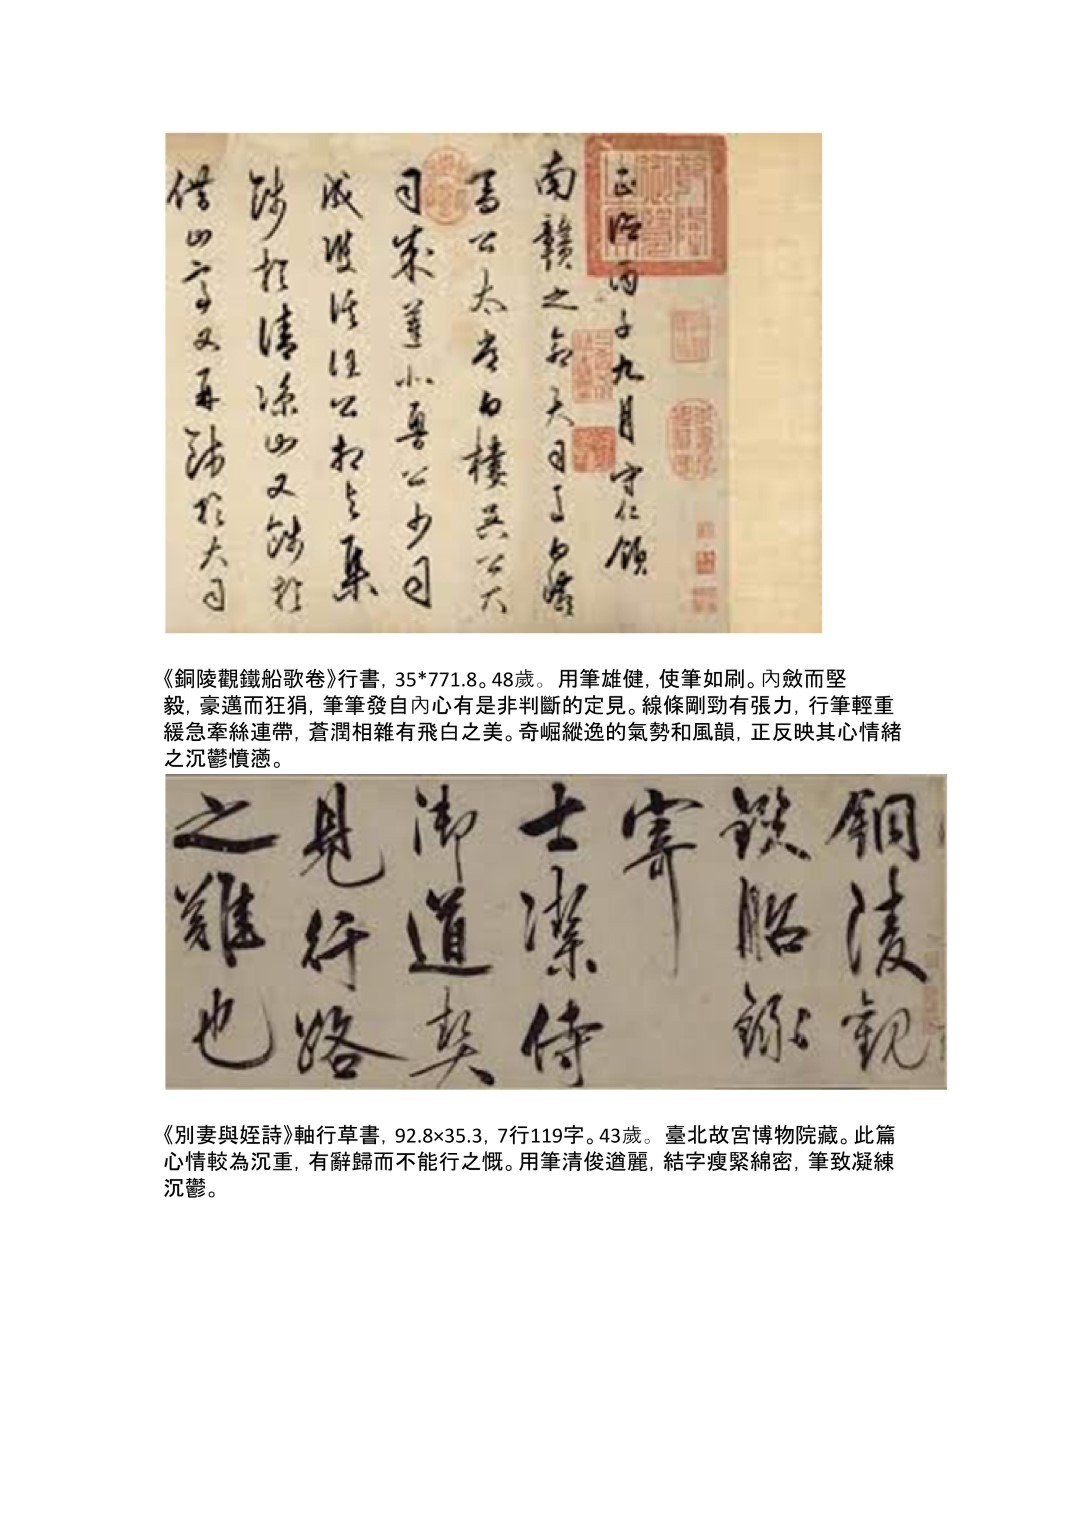 正德丙子九月守仁領
南贛之命大司馬白巖
喬公太常白樓吳公大
司成蓮北魯公少司
成雙溪汪公相與集
餞於清涼山又餞於
借山亭又再餞於大司
《銅陵觀鐵船歌卷》行書，35*771.8。48歲。 用筆雄健，使筆如刷。內斂而堅
毅，豪邁而狂狷，筆筆發自內心有是非判斷的定見。線條剛勁有張力，行筆輕重
緩急牽絲連帶，蒼潤相雜有飛白之美。奇崛縱逸的氣勢和風韻，正反映其心情緒
之沉鬱憤懣。
銅陵觀
鐵船錄
寄
士潔侍
御道契
見行路
之難也
《別妻與姪詩》軸行草書，92.8×35.3，7行119字。43歲。 臺北故宮博物院藏。此篇
心情較為沉重，有辭歸而不能行之慨。用筆清俊遒麗，結字瘦緊綿密，筆致凝練
沉鬱。